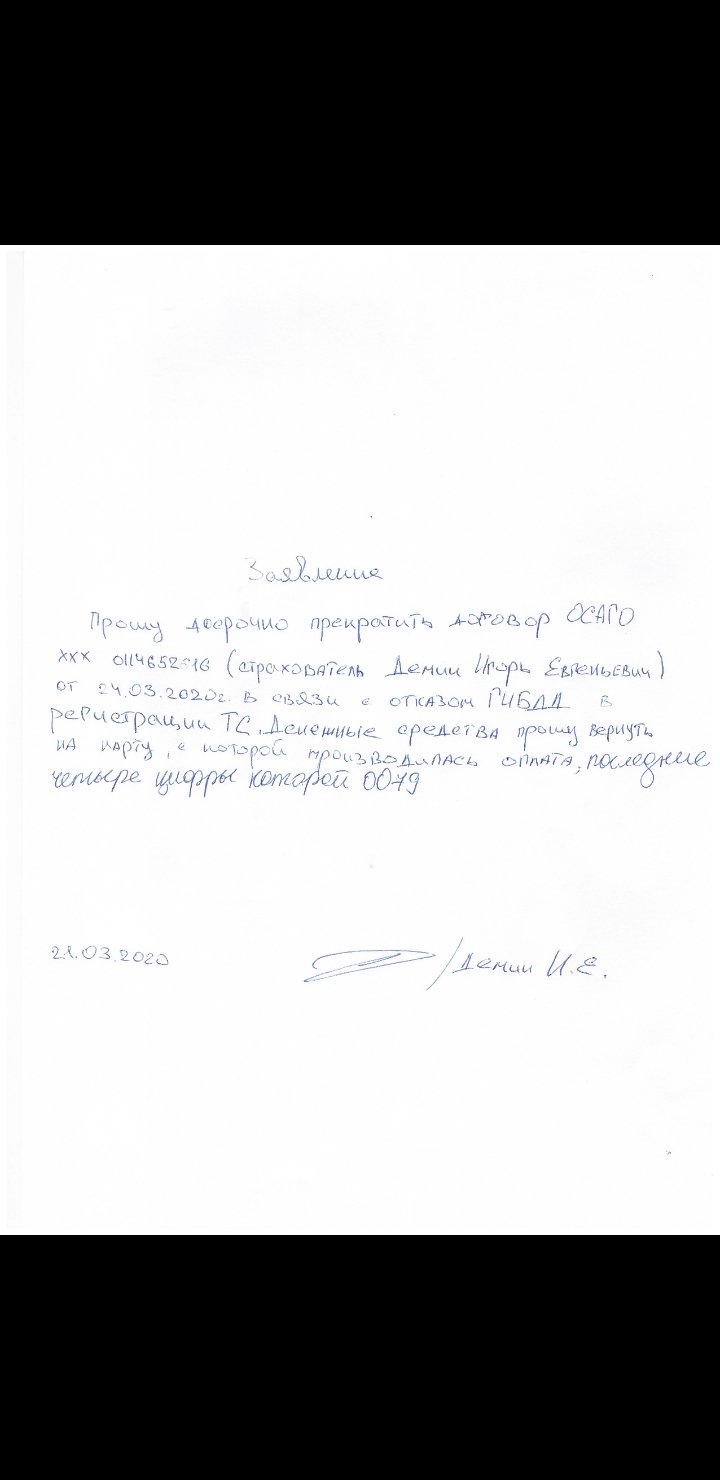 Заявление
Прошу досрочно прекратить договор ОСАГО
ХХХ (страхователь Демин Игорь Евгеньевич)
от 24.03.2020г. в связи с отказом ГИБДД в
регистрации ТС. Денежные средства прошу вернуть
на карту, с которой производилась оплата, последние
четыре цифры которой 0079
21.03.2020 /Демин И.Е.